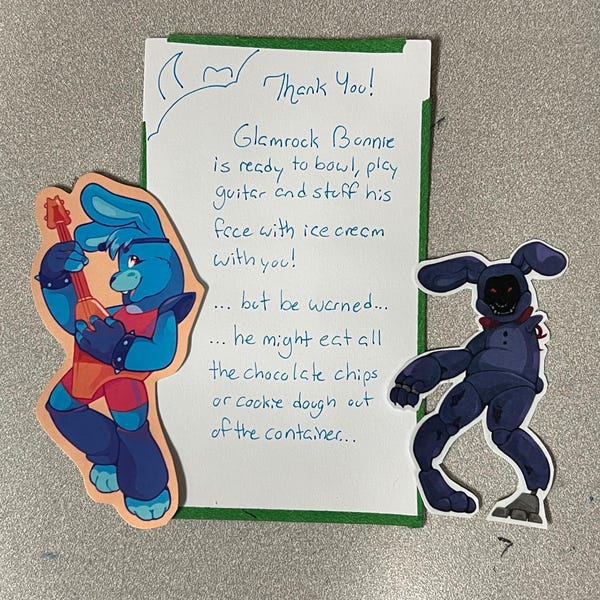 Thank You!
Glamrock Bonnie
is ready to bowl, play
guitar and stuff his
face with ice cream
with you!
... but be warned...
... he might eat all
the chocolate chips
or cookie dough out
of the container...